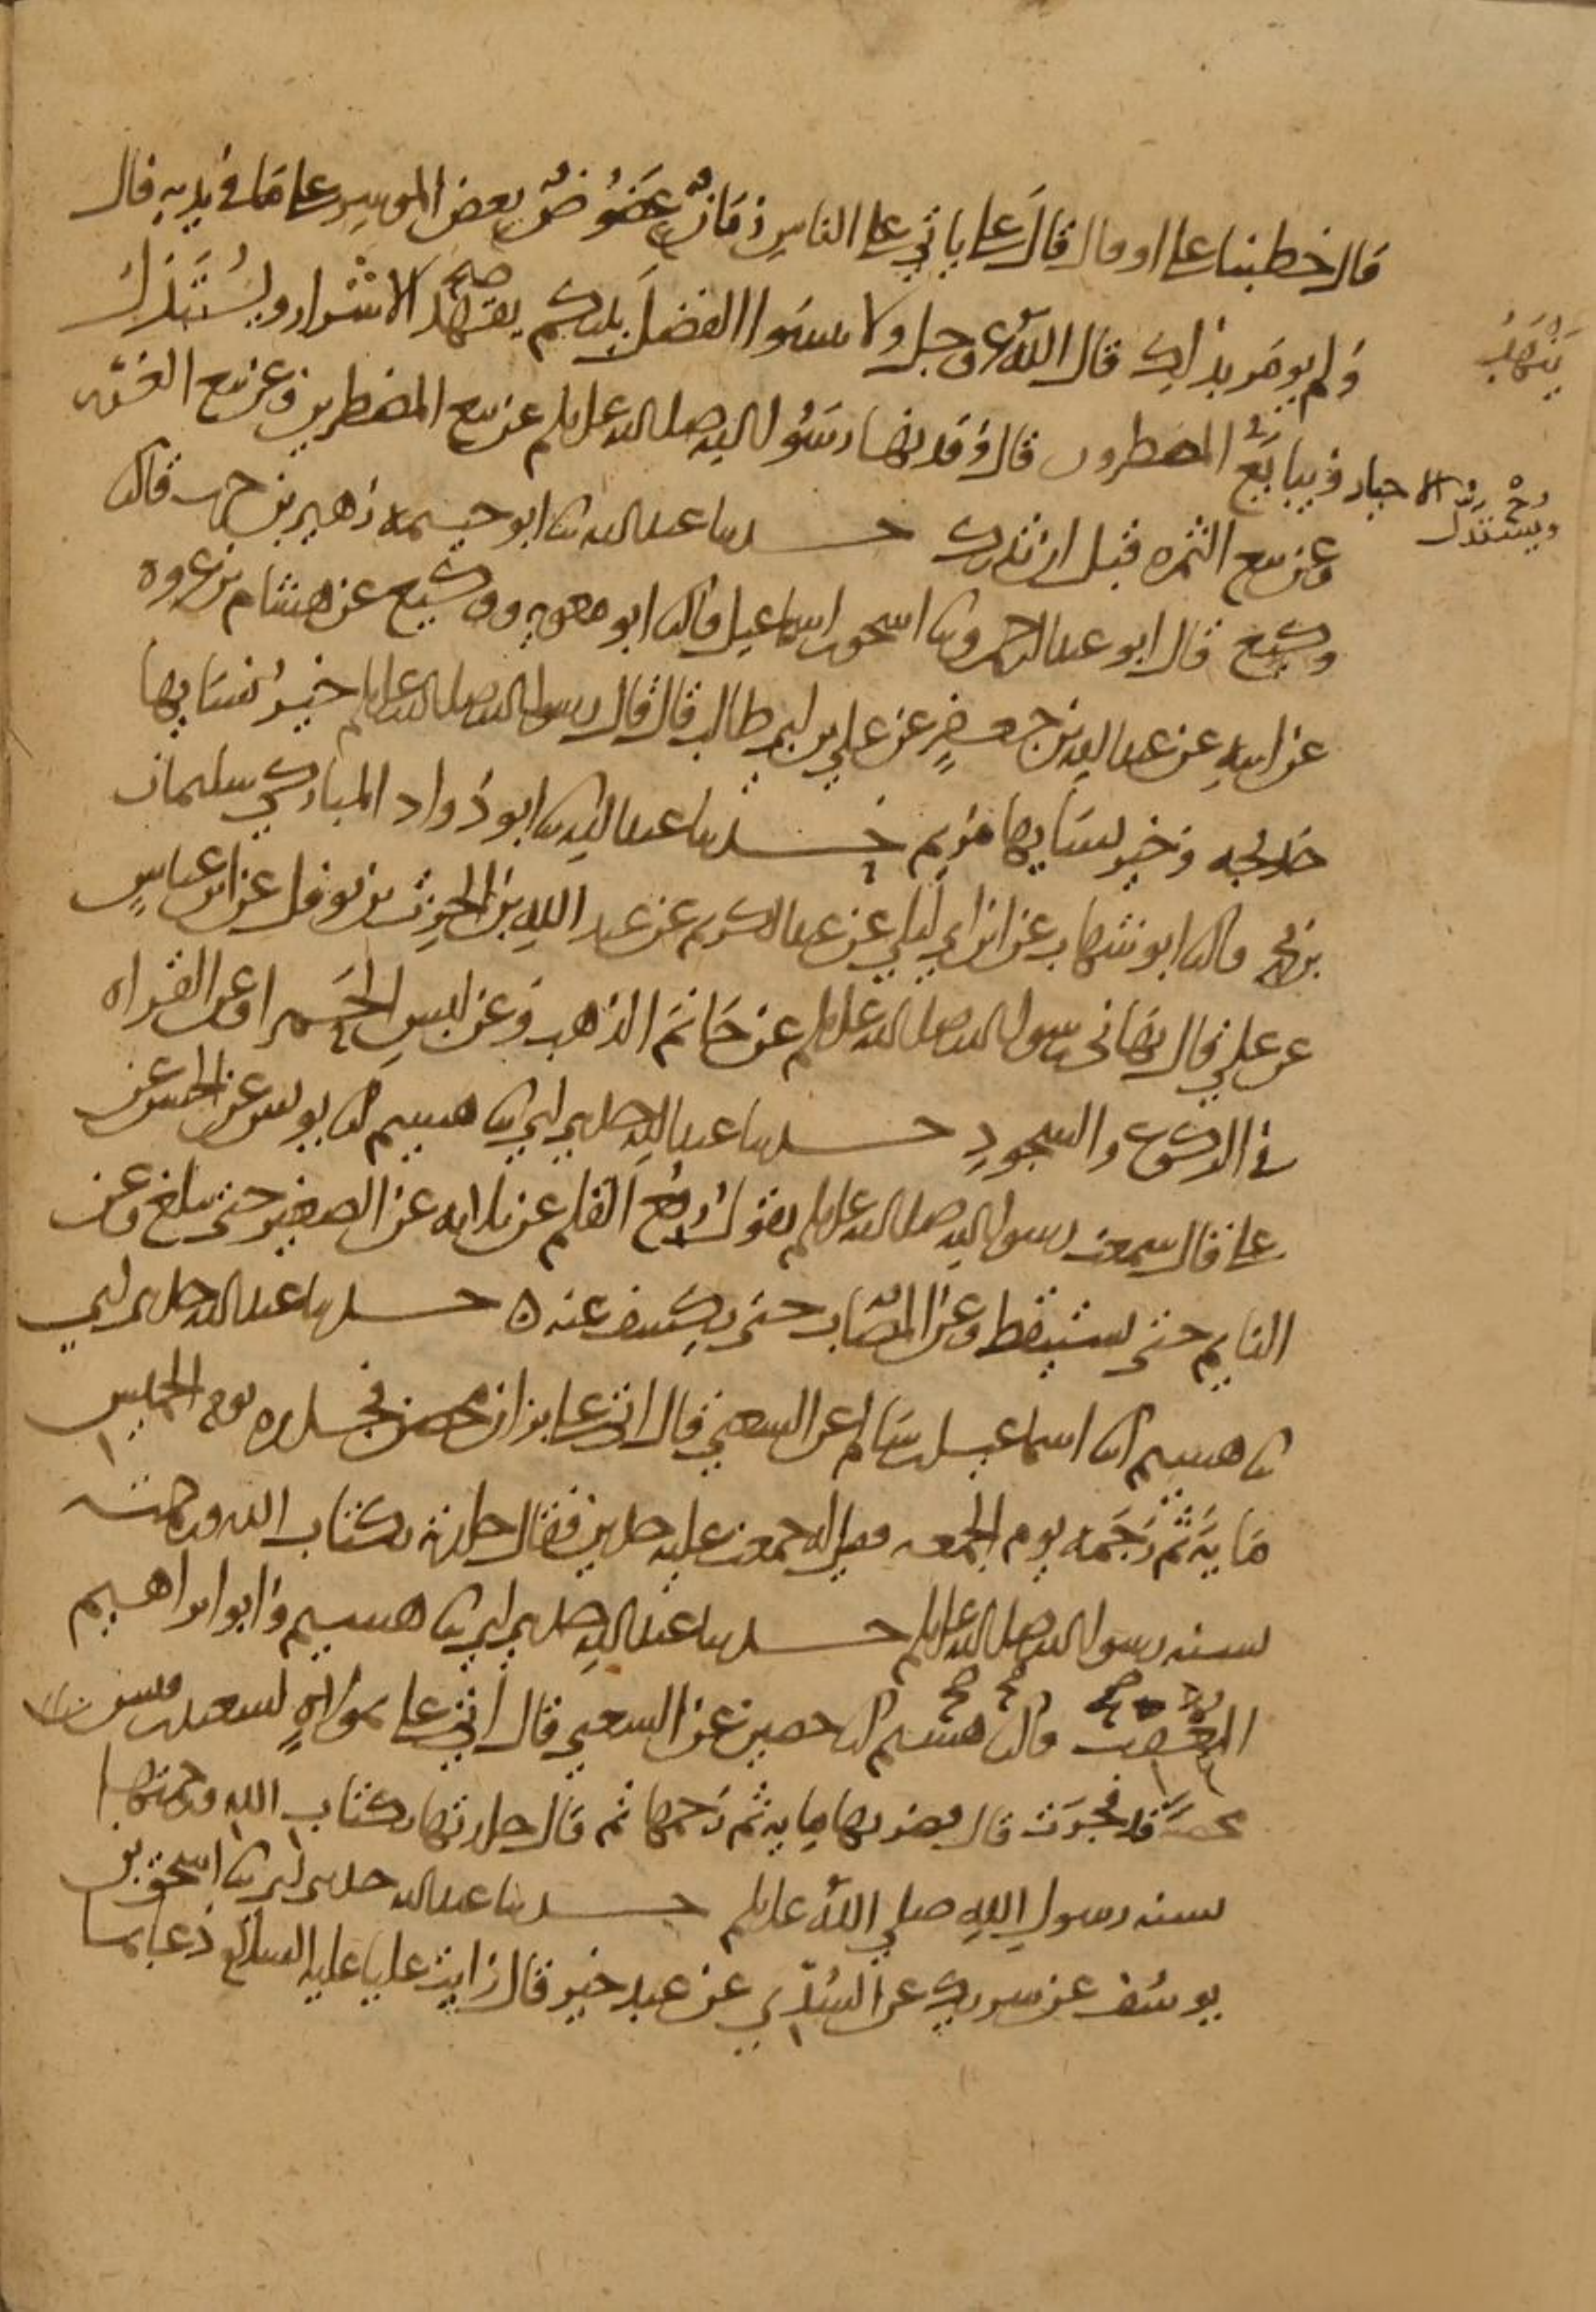 قال خطبنا علي او قال قال علي ياتي على الناس زمان عضوض يعض الموسر على ما في يديه قال
ولم يومر بذلك قال الله عز وجل ولا تنسوا الفضل بينكم ينهد الاشرار ويستذل
الاخيار ويبايع المضطرون قال وقد نها رسول الله صلى الله عليه وسلم عن بيع المضطرين وعن بيع الغرر
وعن بيع الثمره قبل ان تدرك حدثنا عبد الله ثنا ابو خيثمه زهير بن حرب قال ثنا
وكيع قال ابو عبد الرحمن وثنا اسحق بن اسماعيل قال ثنا ابو معويه ووكيع عن هشام بن عروه
عن ابيه عن عبد الله بن جعفر عن علي بن ابي طالب قال قال رسول الله صلى الله عليه وسلم خير نسايها
خديجه وخير نسايها مريم حدثنا عبد الله ثنا ابو داود المباركي سليمان
بن محمد قال ثنا ابو شهاب عن ابن ابي ليلى عن عبد الكريم عن عبد الله بن الحرث بن نوفل عن ابن عباس
عن علي قال نهاني رسول الله صلى الله عليه وسلم عن خاتم الذهب وعن لبس الحمرا وعن القراه
في الركوع والسجود حدثنا عبد الله حدثني ابي ثنا هشيم انا يونس عن الحسن عن
علي قال سمعت رسول الله صلى الله عليه وسلم يقول رفع القلم عن ثلاثه عن الصغير حتى يبلغ وعن
النايم حتى يستيقظ وعن المصاب حتى يكشف عنه ه حدثنا عبد الله حدثني ابي
ثنا هشيم انا اسماعيل بن سالم عن الشعبي قال اتي علي بزان محصن فجلده يوم الخميس
مايه ثم رجمه يوم الجمعه فقيل له جمعت عليه حدين فقال جلدته بكتاب الله ورجمته
بسنه رسول الله صلى الله عليه وسلم حدثنا عبد الله حدثني ابي ثنا هشيم وابو ابراهيم
المعقب قال ثنا هشيم انا حصين عن الشعبي قال اتي علي بمولاه لسعيد بن قيس
محصنه قد فجرت قال فضربها مايه ثم رجمها ثم قال جلدتها بكتاب الله ورجمتها
بسنه رسول الله صلى الله عليه وسلم حدثنا عبد الله حدثني ابي ثنا اسحق بن
يوسف عن شريك عن السدي عن عبد خير قال رايت عليا عليه السلام دعا بما
ينهد
ويستذل